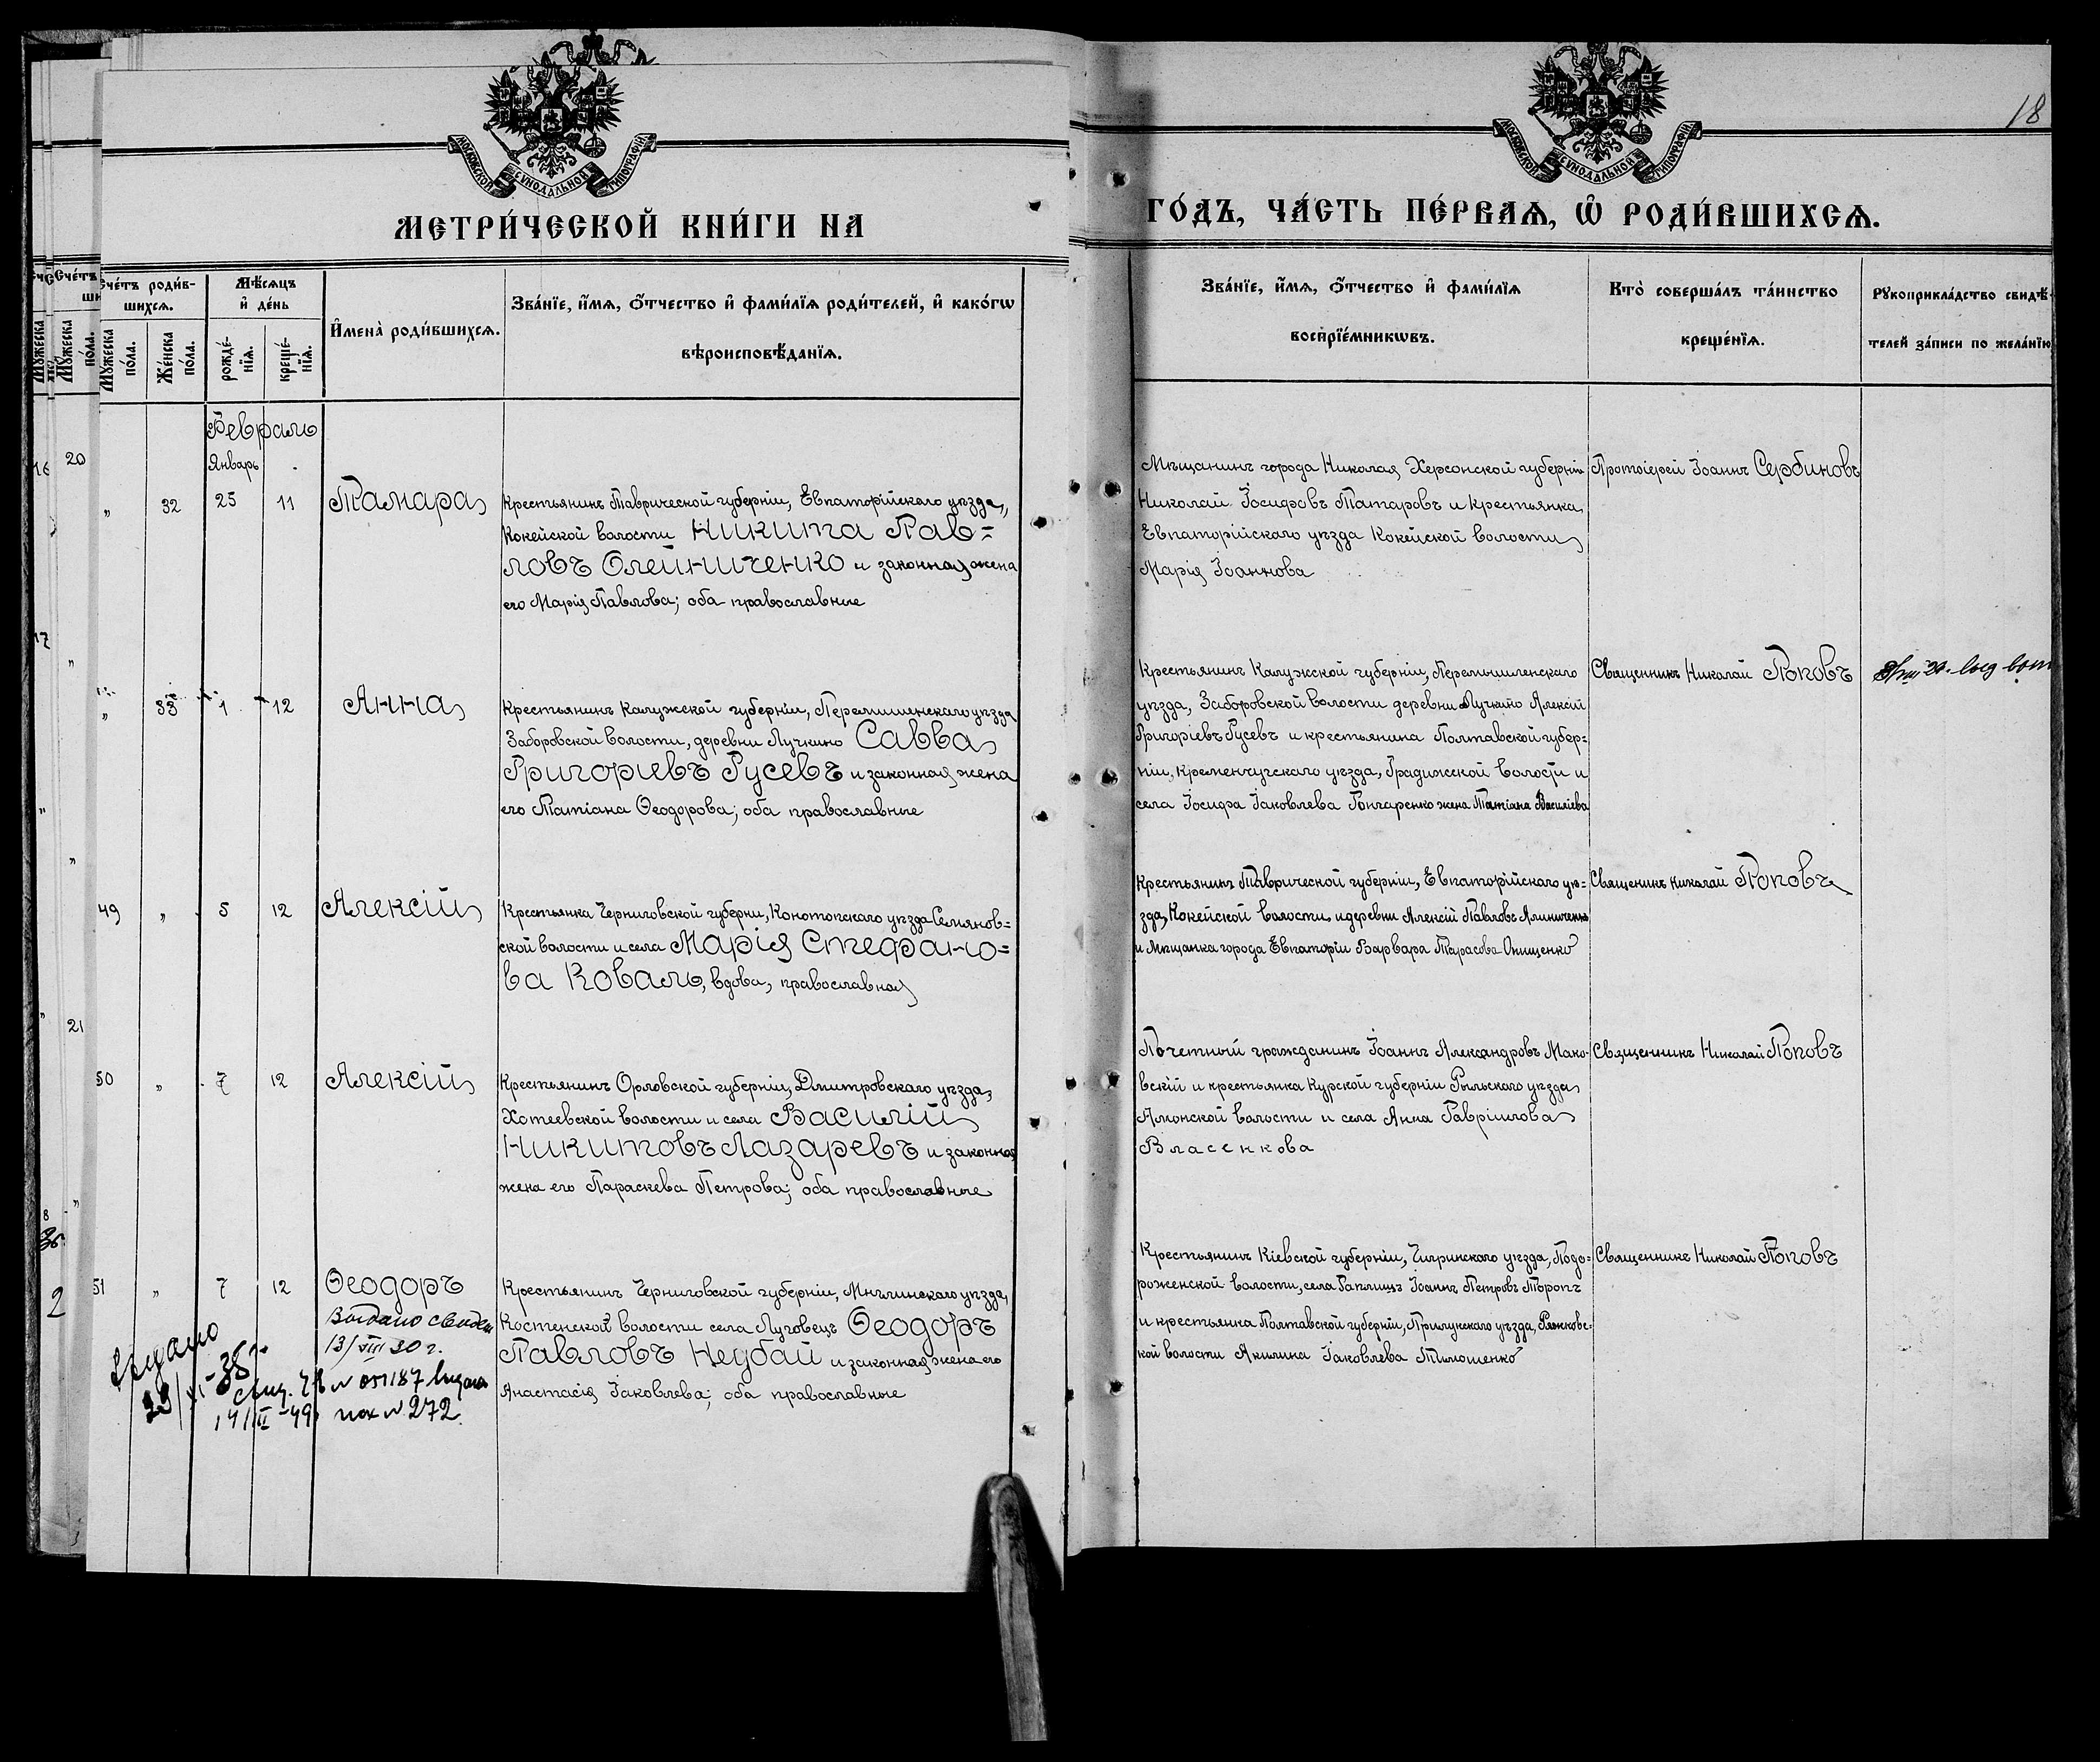 18
МОСКОВСКОЙ СѴНОДАЛЬНОЙ ТИПОГРАФІИ
МОСКОВСКОЙ СѴНОДАЛЬНОЙ ТИПОГРАФІИ
МЕТРИ́ЧЕСКОЙ КНИ́ГИ НА
ГО́ДЪ, ЧА́СТЬ ПЕ́РВАѦ, Ѽ РОДИ́ВШИХСѦ.
Счéтъ роди́вшихсѧ.
Мꙋ́жеска по́ла.
Же́нска по́ла.
Мѣ́сѧцъ и҆ де́нь
рожде́нїѧ.
креще́нїѧ.
И҆мена̀ роди́вшихсѧ.
Зва́нїе, и҆́мѧ, ѻ҆́тчество и҆ фами́лїѧ роди́телей, и҆ како́гѡ
вѣроисповѣ́данїѧ.
Зва́нїе, и҆́мѧ, ѻ҆́тчество и҆ фами́лїѧ
воспрїе́мникѡвъ.
Кто̀ соверша́лъ та́инство
креще́нїѧ.
Рꙋкоприкла́дство свидѣ́-
телей за́писи по жела́нїю
Февраль
Январь
„ 32 25 11 Тамара
Крестьянинъ Таврической губерніи, Евпаторійскаго уѣзда,
Кокейской волости Никита Пав=
ловъ Олейниченко и законная жена
его Марія Павлова; оба православные
Мѣщанинъ города Николая Херсонской губерніи
Николай Іосифовъ Татаровъ и крестьянка
Евпаторійскаго уѣзда Кокейской волости
Марія Іоаннова
Протоіерей Іоаннъ Сербиновъ
„ 33 1 12 Анна
Крестьянинъ Калужской губерніи, Перемышленскаго уѣзда
Заборовской волости, деревни Лучкино Савва
Григоріевъ Гусевъ и законная жена
его Татіана Ѳеодорова; оба православные
Крестьянинъ Калужской губерніи, Перемышленскаго
уѣзда, Заборовской волости деревни Лучкино Алексій
Григоріевъ Гусевъ и крестьянина Полтавской губер=
ніи, Кременчугскаго уѣзда, Градижской волости и
села Іосифа Іаковлева Гончаренко жена Татіана Василіева
Священникъ Николай Поповъ
49 „ 5 12 Алексій
Крестьянка Черниговской губерни, Конотопскаго уѣзда Семянов=
ской волости и села Марія Стефано=
ва Коваль, вдова, православная
Крестьянинъ Таврической губерніи, Евпаторійскаго уѣ=
зда, Кокейской волости и деревни Алексій Павловъ Алиниченко
и Мѣщанка города Евпаторіи Варвара Тарасова Онищенко
Священикъ Николай Поповъ
50 „ 7 12 Алексій
Крестьянинъ Орловской губерніи, Дмитровскаго уѣзда,
Хотеевской волости и села Василій
Никитовъ Лазаревъ и законная
жена его Параскева Петрова; оба православные
Почетный гражданинъ Іоаннъ Александровъ Мако-
вскій и крестьянка Курской губерніи Рыльскаго уѣзда
Амонской волости и села Анна Гавріилова
Власенкова
Священникъ Николай Поповъ
51 „ 7 12 Ѳеодоръ
Крестьянинъ Черниговской губерніи, Мнглинскаго уѣзда,
Костенской волости села Луговецъ Ѳеодоръ
Павловъ Неубай и законная жена его
Анастасія Іаковлева; оба православные
Крестьянинъ Кіевской губерніи, Чигринскаго уѣзда, Подо=
роженской волости, села Раплицъ Іоаннъ Петровъ Торопъ
и крестьянка Полтавской губерніи, Прилукскаго уѣзда,
кой волости Акилина Іаковлева Тимошенко
Священникъ Николай Поповъ
Выдано
13/VIII 30 г.
№ 051187
14/II-49 № 272